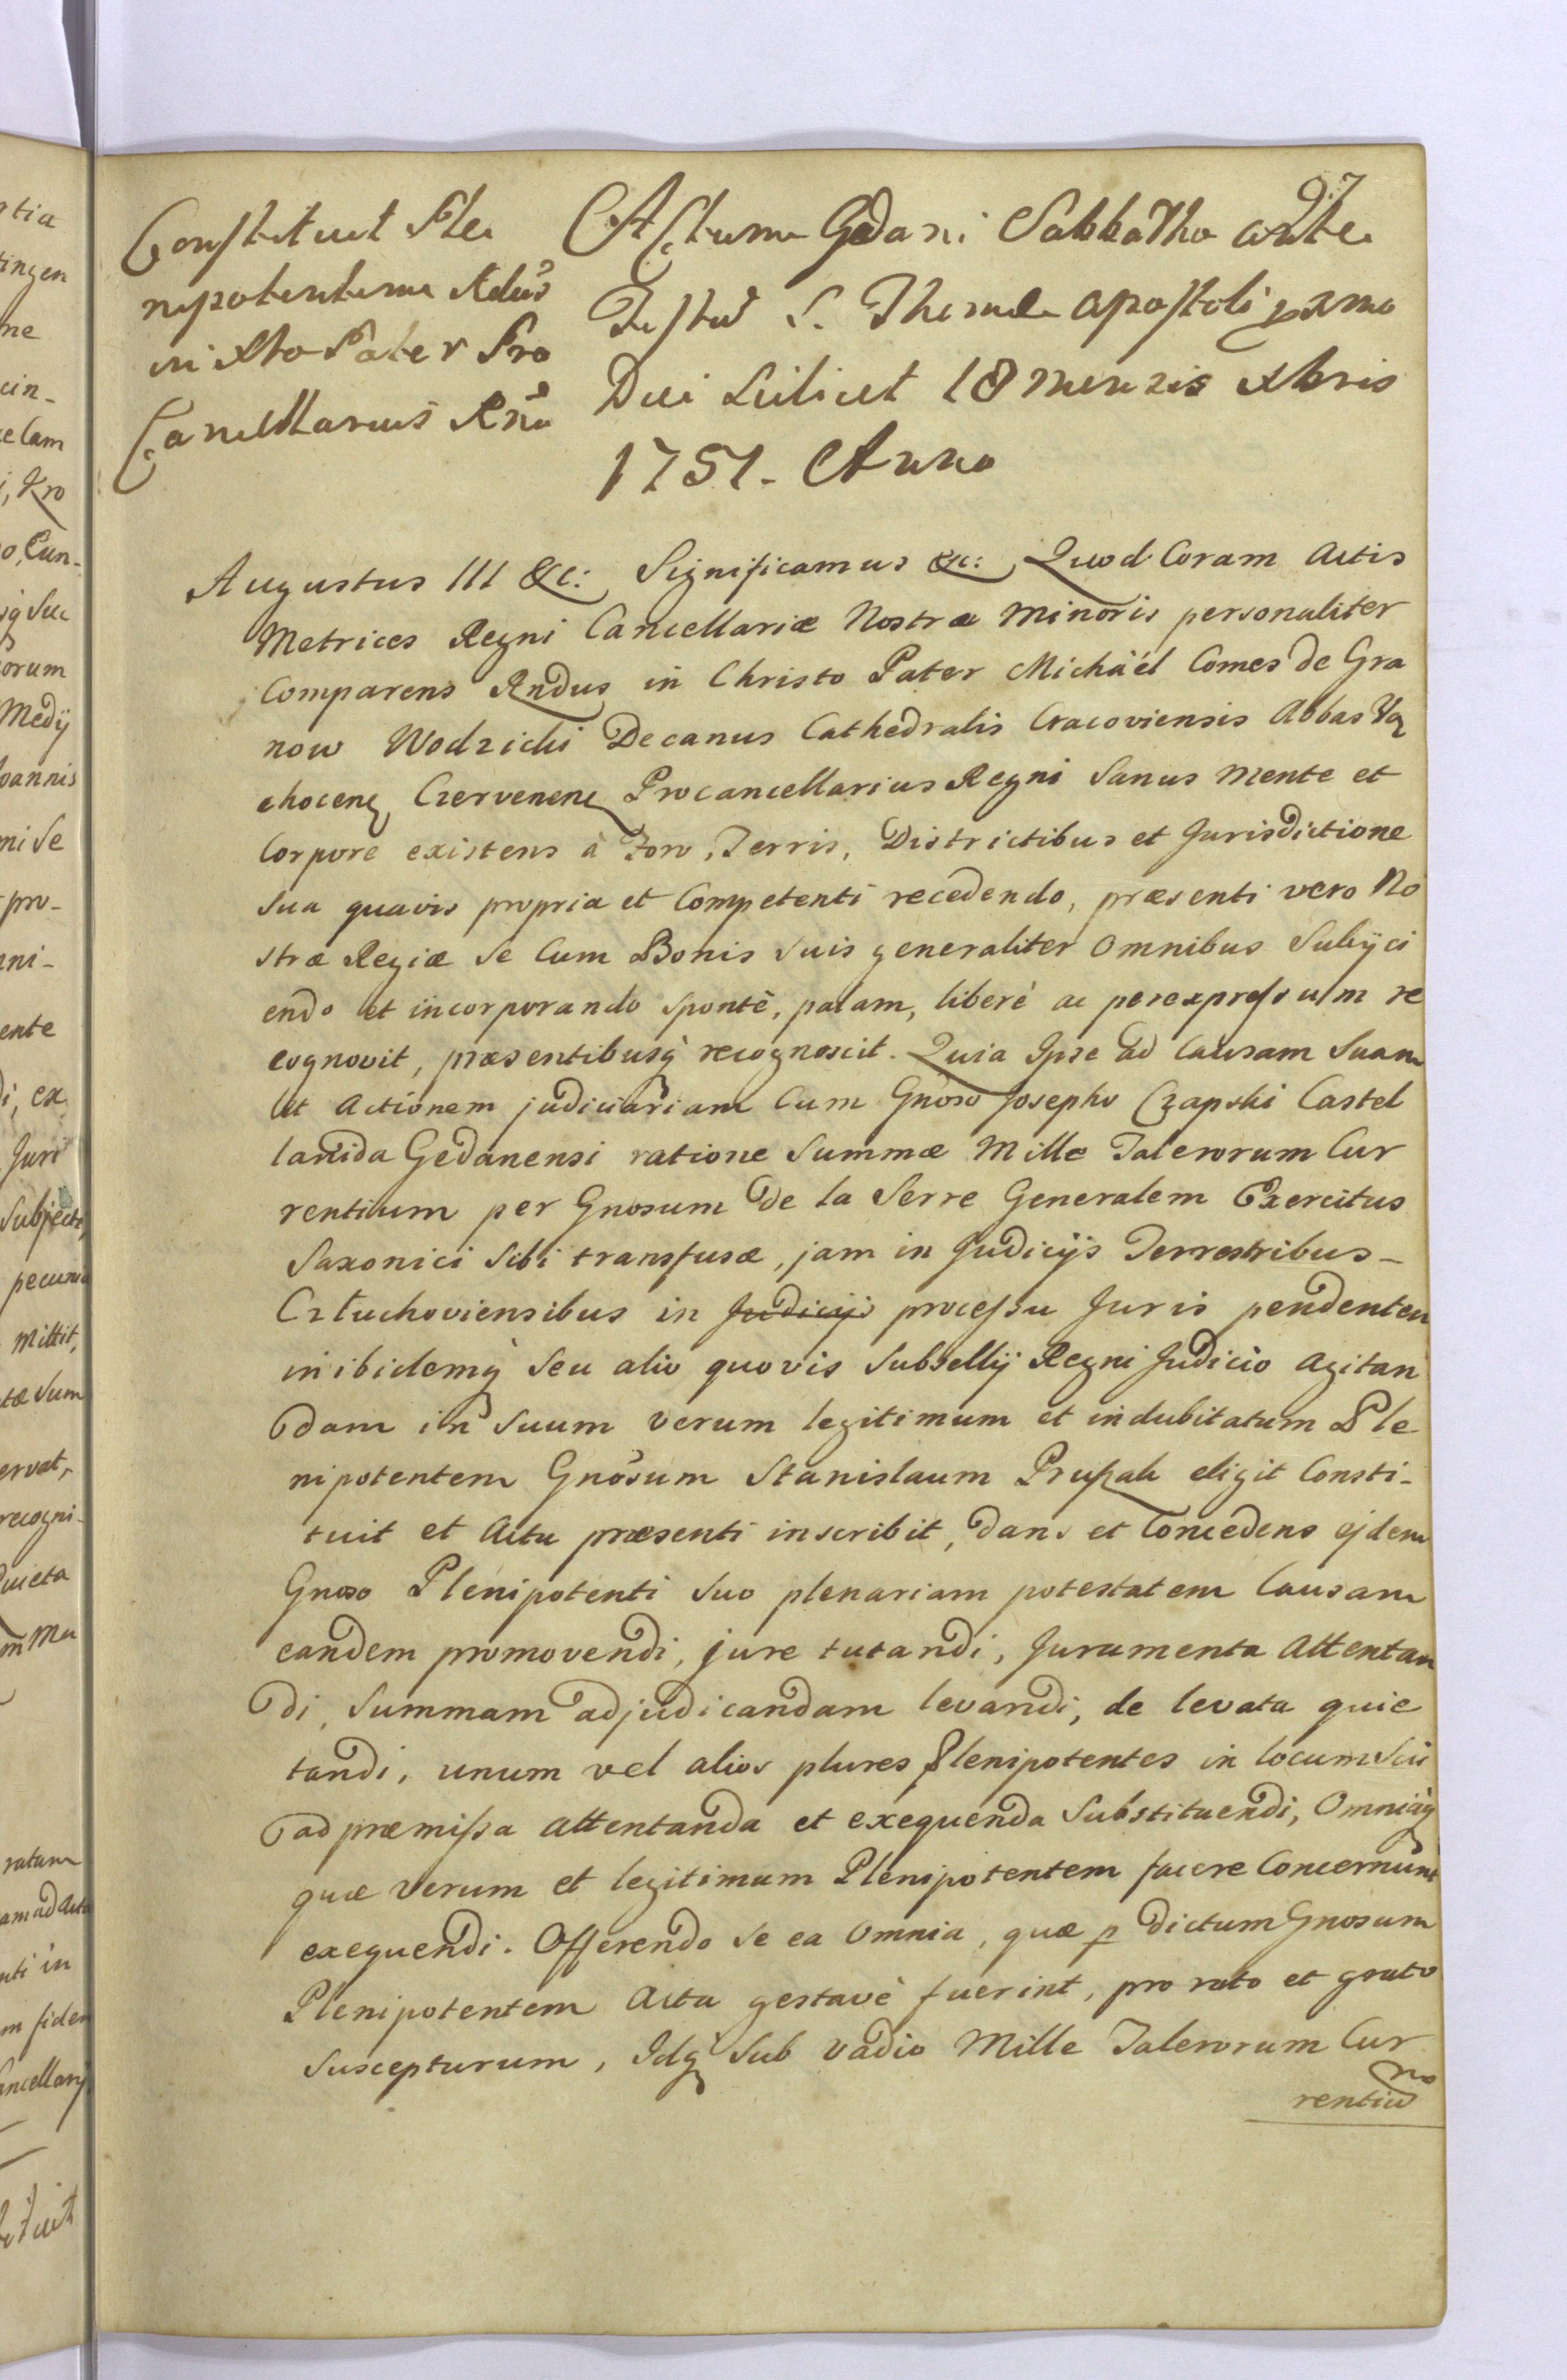 97
Constituit Ple
nipotentem Rdus
in Xto Pater Pro
Cancellarius Rni
Actum Gedani Sabbatho ante
Festum S. Thomae apostoli
Dni Scilicet 18 mensis Xbris
1751. Anno
Augustus III &c: Significamus &c: Quod Coram Actis
Metrices Regni Cancellariæ Nostræ Minoris personaliter
Comparens Rndus in Christo Pater Michäél Comes de Gra
now Wodzicki Decanus Cathedralis Cracoviensis Abbas Va
chocenę Czervenenę Procancellarius Regni Sanus Mente et
Corpore existens à Foro, Terris, Districtibus et Jurisdictione
sua quavis propria et Competenti recedendo, præsenti vero No
stræ Regiæ se Cum Bonis suis generaliter Omnibus Subijci
endo et incorporando spontè, palam, liberè ac per expressum re
cognovit, præsentibusq́ recognoscit. Quia Ipse ad Causam Suam
et Actionem judiciariam Cum Gnoso Josepho Czapski Castel
lanida Gedanensi ratione Summæ Mille Talerorum Cur
rentium per Gnosum De la Serre Generalem Exercitus
Saxonici Sibi transfusæ, jam in Judicijs Terrestribus
Człuchoviensibus in Judicijs processu Juris pendentem
inibidemq́ seu alio quovis Subsellij Regni Judicio Agitan
dam in Suum verum legitimum et indubitatum Ple
nipotentem Gnosum Stanislaum eligit Consti-
tuit et Actu præsenti inscribit, dans et Concedens ejdem
Gnoso Plenipotenti Suo plenariam potestatem Causam
eandem promovendi, jure tutandi, Juramenta Attentan
di, Summam adjudicandam levandi, de levata quie
tandi, unum vel alios plures Plenipotentes in locum Sui
ad præmissa attentanda et exequenda Substituendi, Omniaq́
quæ Verum et legitimum Plenipotentem facere Concernunt
exequendi. Offerendo se ea Omnia, quæ p dictum Gnosum
Plenipotentem Acta gestavè fuerint, pro rato et grato
Suscepturum, Idq́ Sub vadio Mille Talerorum Cur
rentiū